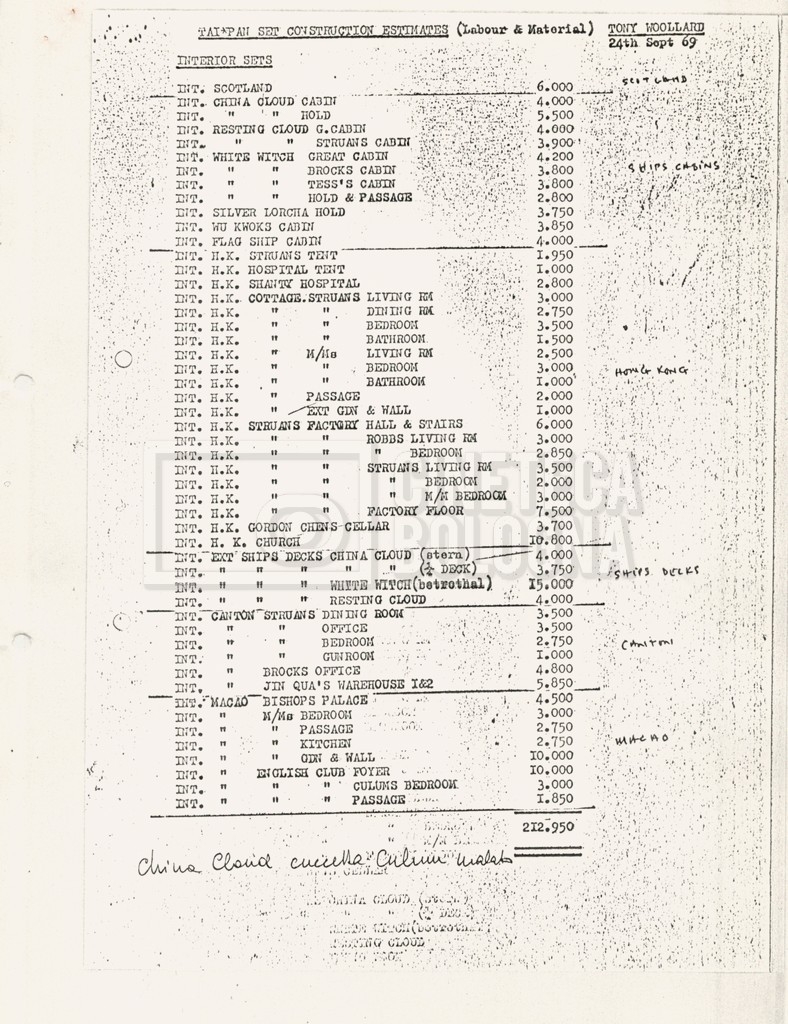 TAI*PAN SET CONSTRUCTION ESTIMATES (Labour & Material) TONY WOOLLARD
24th Sept 69
INTERIOR SETS
INT. SCOTLAND 6.000 SCOTLAND
INT. CHINA CLOUD CABIN 4.000
INT. " " HOLD 5.500
INT. RESTING CLOUD G.CABIN 4.000
INT. " " STRUANS CABIN 3.900
INT. WHITE WITCH GREAT CABIN 4.200
INT. " " BROCKS CABIN 3.800 SHIPS CABINS
INT. " " TESS'S CABIN 3.800
INT. " " HOLD & PASSAGE 2.800
INT. SILVER LORCHA HOLD 3.750
INT. WU KWOKS CABIN 3.850
INT. FLAG SHIP CABIN 4.000
INT. H.K. STRUANS TENT 1.950
INT. H.K. HOSPITAL TENT 1.000
INT. H.K. SHANTY HOSPITAL 2.800
INT. H.K. COTTAGE.STRUANS LIVING RM 3.000
INT. H.K. " " DINING RM 2.750
INT. H.K. " " BEDROOM 3.500
INT. H.K. " " BATHROOM 1.500
INT. H.K. " M/Ms LIVING RM 2.500
INT. H.K. " " BEDROOM 3.000 HONG KONG
INT. H.K. " " BATHROOM 1.000
INT. H.K. " PASSAGE 2.000
INT. H.K. " EXT GDN & WALL 1.000
INT. H.K. STRUANS FACTORY HALL & STAIRS 6.000
INT. H.K. " " ROBBS LIVING RM 3.000
INT. H.K. " " " BEDROOM 2.850
INT. H.K. " " STRUANS LIVING RM 3.500
INT. H.K. " " " BEDROOM 2.000
INT. H.K. " " " M/M BEDROOM 3.000
INT. H.K. " " FACTORY FLOOR 7.500
INT. H.K. GORDON CHENS CELLAR 3.700
INT. H. K. CHURCH 10.800
INT. EXT SHIPS DECKS CHINA CLOUD (stern) 4.000
INT. " " " " " (¼ DECK) 3.750 SHIPS DECKS
INT. " " " WHITE WITCH(betrothal) 15.000
INT. " " " RESTING CLOUD 4.000
INT. CANTON STRUANS DINING ROOM 3.500
INT. " " OFFICE 3.500
INT. " " BEDROOM 2.750 CANTON
INT. " " GUNROOM 1.000
INT. " BROCKS OFFICE 4.800
INT. " JIN QUA'S WAREHOUSE 1&2 5.850
INT. MACAO BISHOPS PALACE 4.500
INT. " M/Ms BEDROOM 3.000
INT. " " PASSAGE 2.750
INT. " " KITCHEN 2.750 MACAO
INT. " " GDN & WALL 10.000
INT. " ENGLISH CLUB FOYER 10.000
INT. " " " CULUMS BEDROOM 3.000
INT. " " " PASSAGE 1.850
212.950
China Cloud Culum
CHINA CLOUD (stern)
" " (¼ DECK)
WHITE WITCH(betrothal)
RESTING CLOUD
CINETECA
BOLOGNA